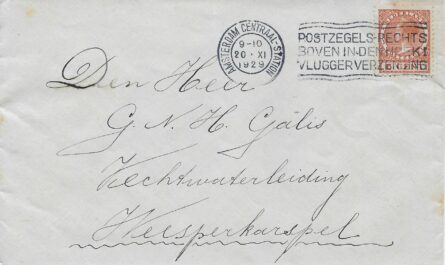 AMSTERDAM CENTRAAL-STATION
9-10
20·XI
1929
POSTZEGELS RECHTS
BOVEN IN DEN HOEK!
VLUGGER VERZENDING
Den Heer
G. N. H. Gälis
Vechtwaterleiding
Weesperkarspel